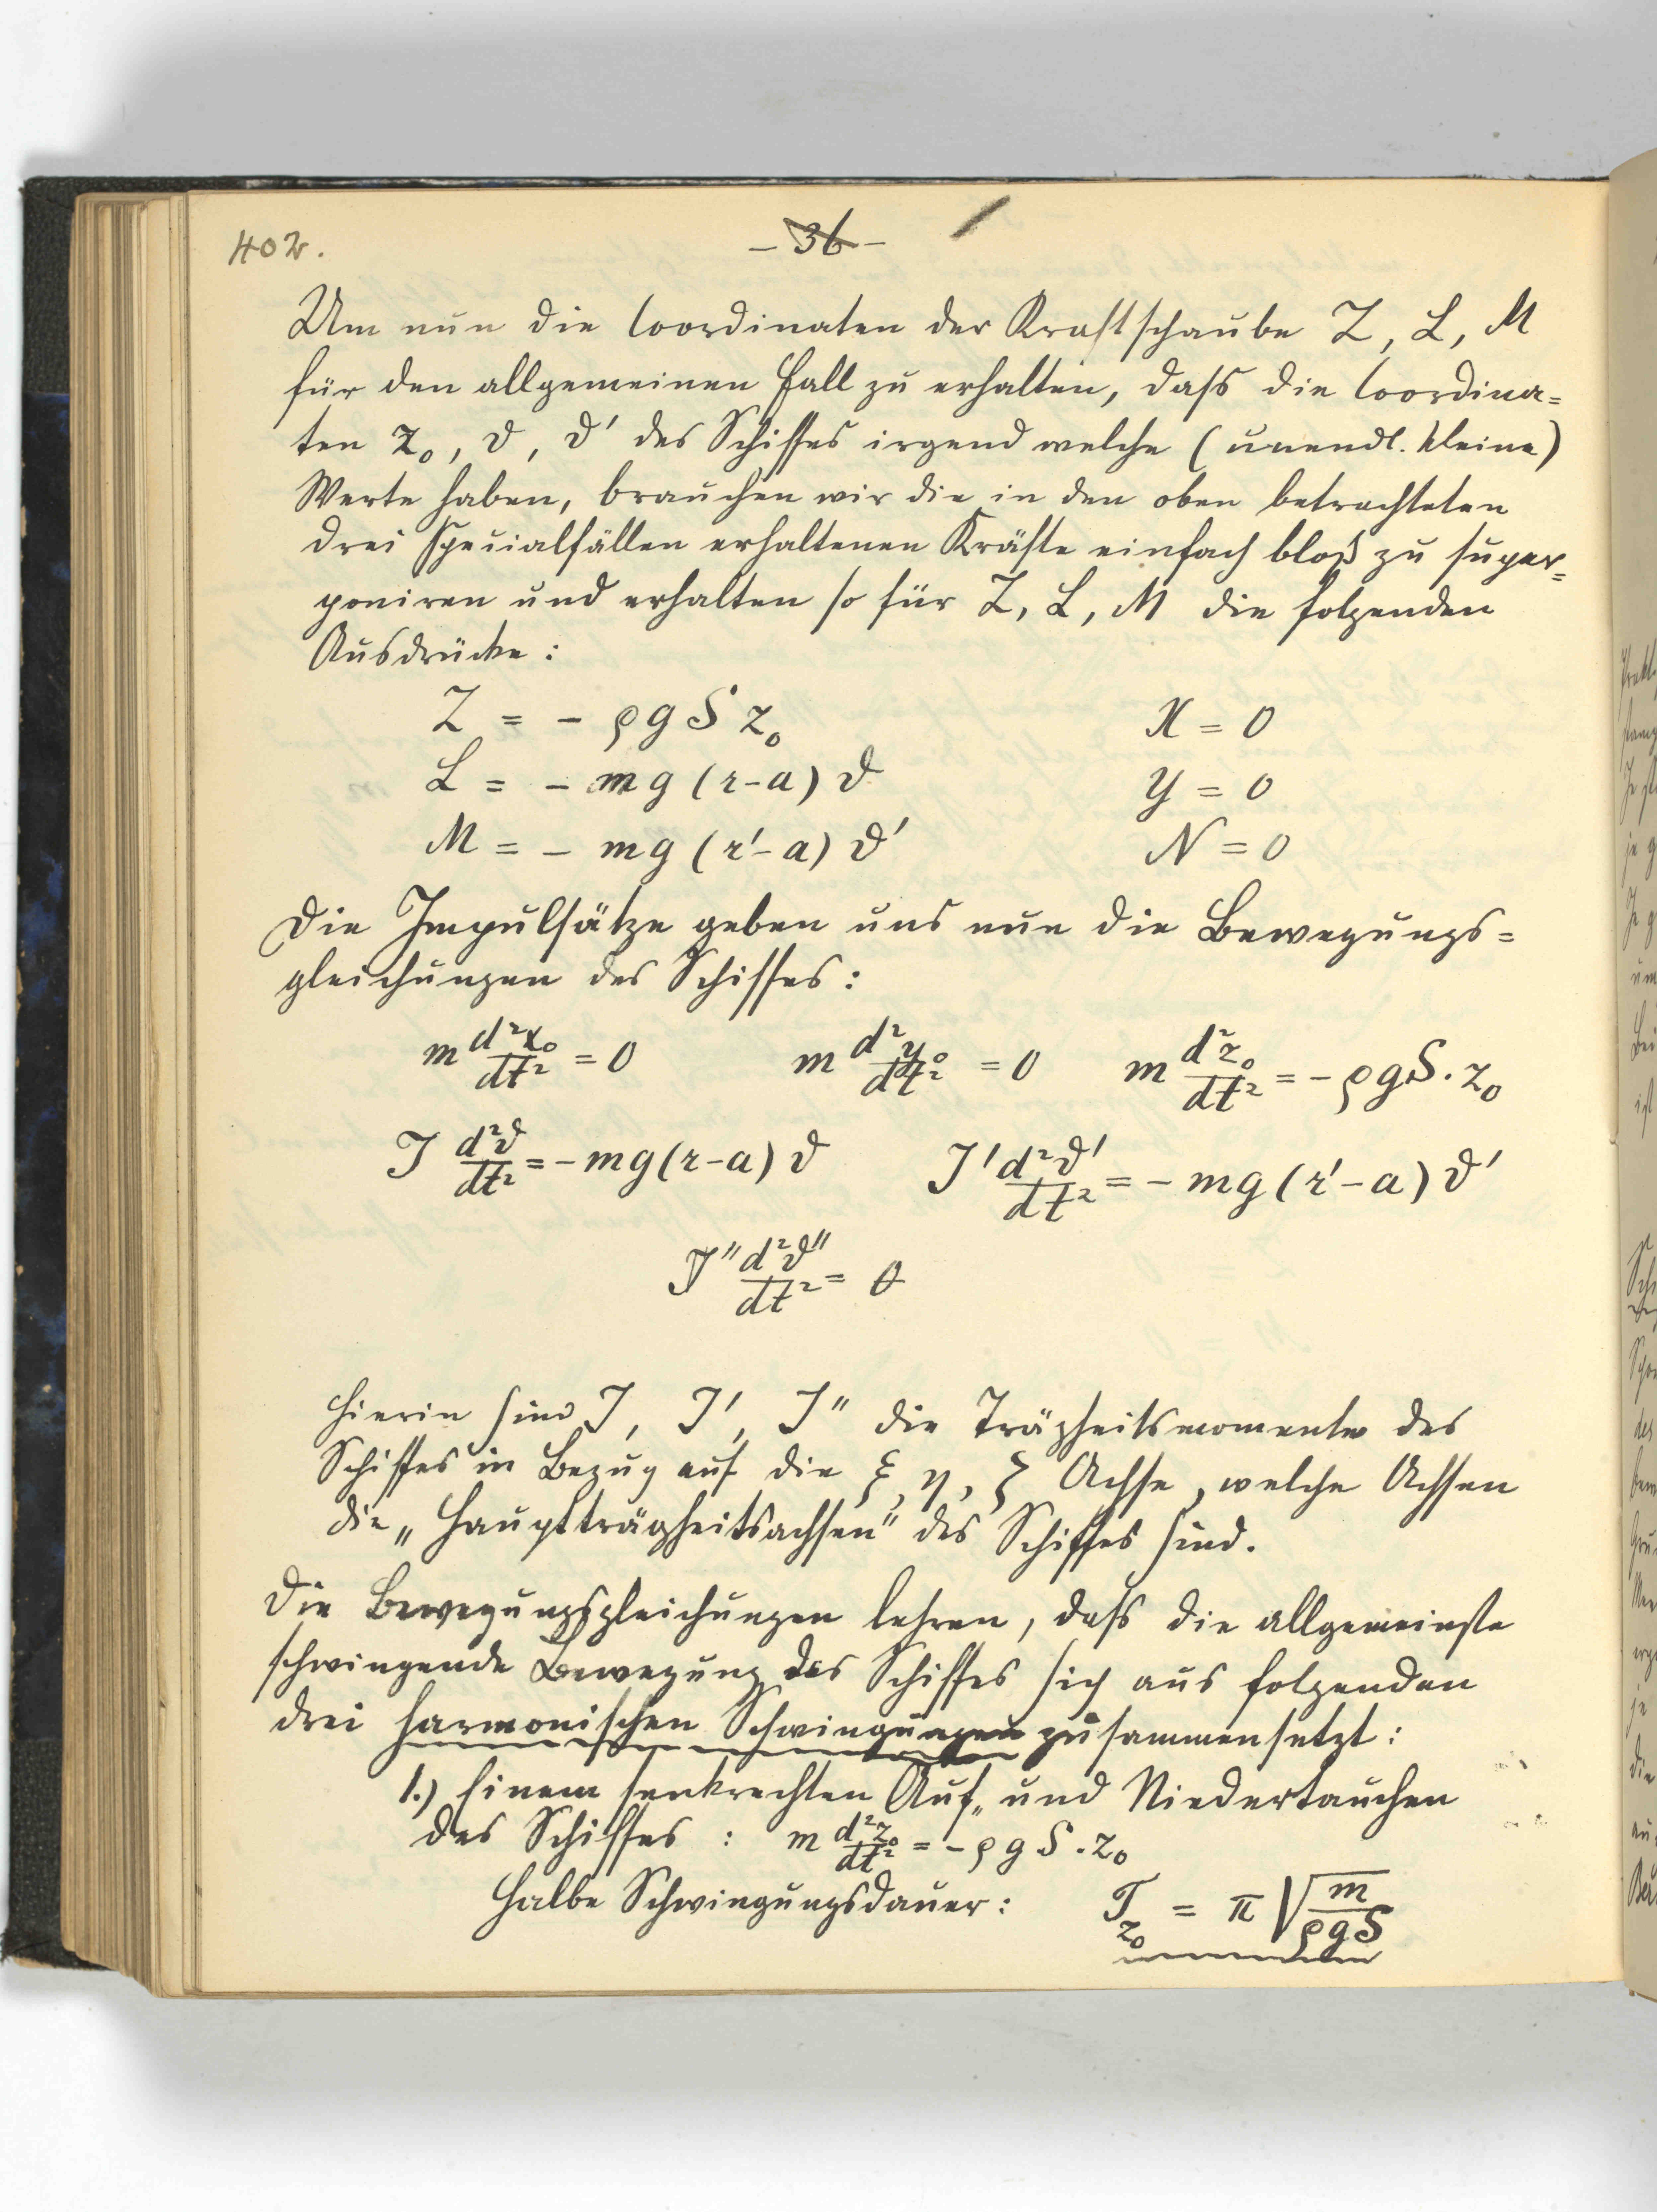 402.
- 36 -
Um nun die Coordinaten der Kraftschaube Z, L, M
für den allgemeinen Fall zu erhalten, dass die Coordina=
ten z₀, ϑ, ϑ' des Schiffes irgend welche (unendl. kleine)
Werte haben, brauchen wir die in den oben betrachteten
drei Specialfällen erhaltenen Kräfte einfach bloß zu super=
poniren und erhalten so für Z, L, M die folgenden
Ausdrücke:
Z = - ρgS z₀ X = 0
L = - mg (r-a) ϑ Y = 0
M = - mg (r'-a) ϑ' N = 0
Die Impulsätze geben uns nun die Bewegungs=
gleichungen des Schiffes:
m d²x₀/dt² = 0 m d²y₀/dt² = 0 m d²z₀/dt² = - ρgS · z₀
J d²ϑ/dt² = - mg(r-a) ϑ J' d²ϑ'/dt² = - mg (r'-a) ϑ'
J'' d²ϑ''/dt² = 0
Hierin sind J, J', J'' die Trägheitsmomente des
Schiffes in Bezug auf die ξ, η, ζ Achse, welche Achsen
die „Hauptträgheitsachsen" des Schiffes sind.
Die Bewegungsgleichungen lehren, dass die allgemeinste
schwingende Bewegung des Schiffes sich aus folgenden
drei harmonischen Schwingungen zusammensetzt:
1.) Einem senkrechten Auf- und Niedertauchen
des Schiffes : m d²z₀/dt² = - ρgS · z₀
Halbe Schwingungsdauer: T_z₀ = π √(m/ρgS)